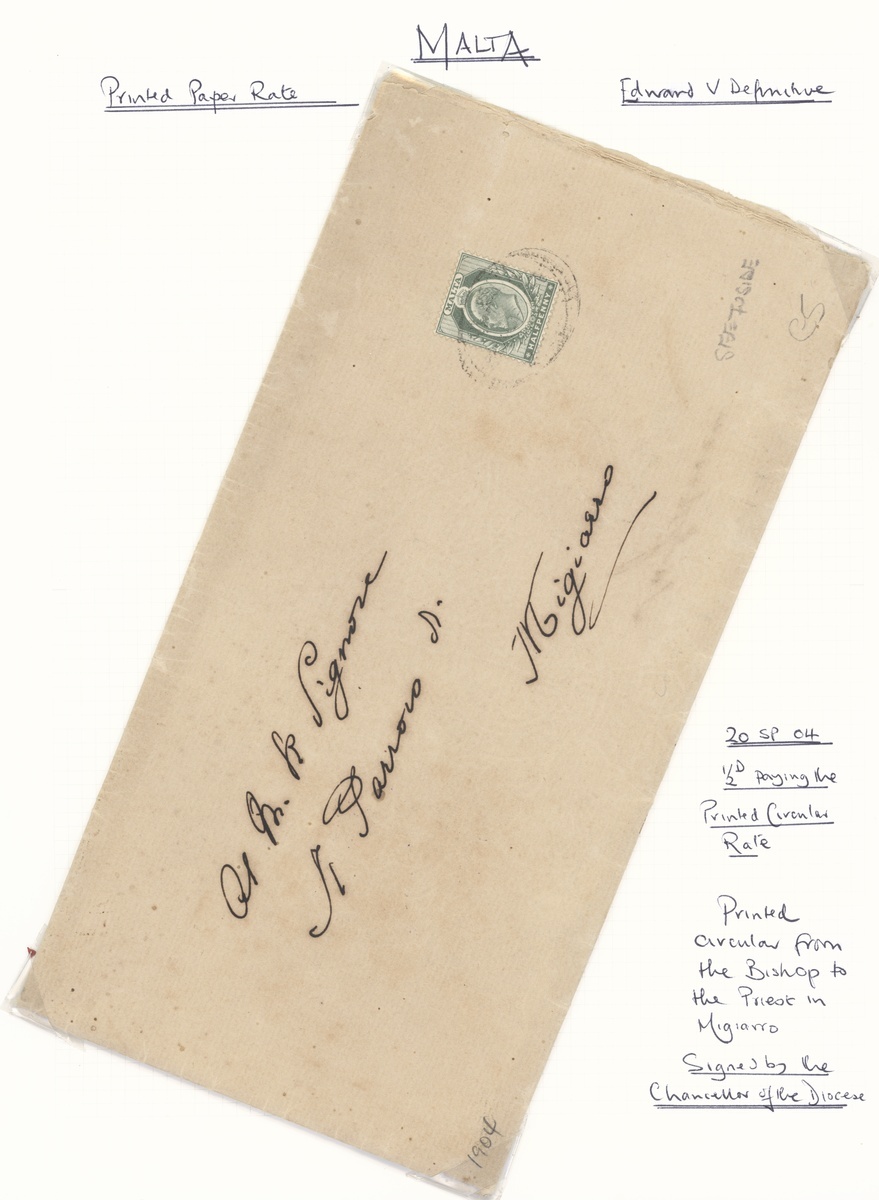 MALTA
Printed Paper Rate
Edward V Definitive
MALTA
HALFPENNY
Al M. R Signore
Il Parroco di
Migiarro
SEE TO SIDE
20 SP 04
½D paying the
Printed Circular
Rate
Printed
circular from
the Bishop to
the Priest in
Migiarro
Signed by the
Chancellor of the Diocese
1904